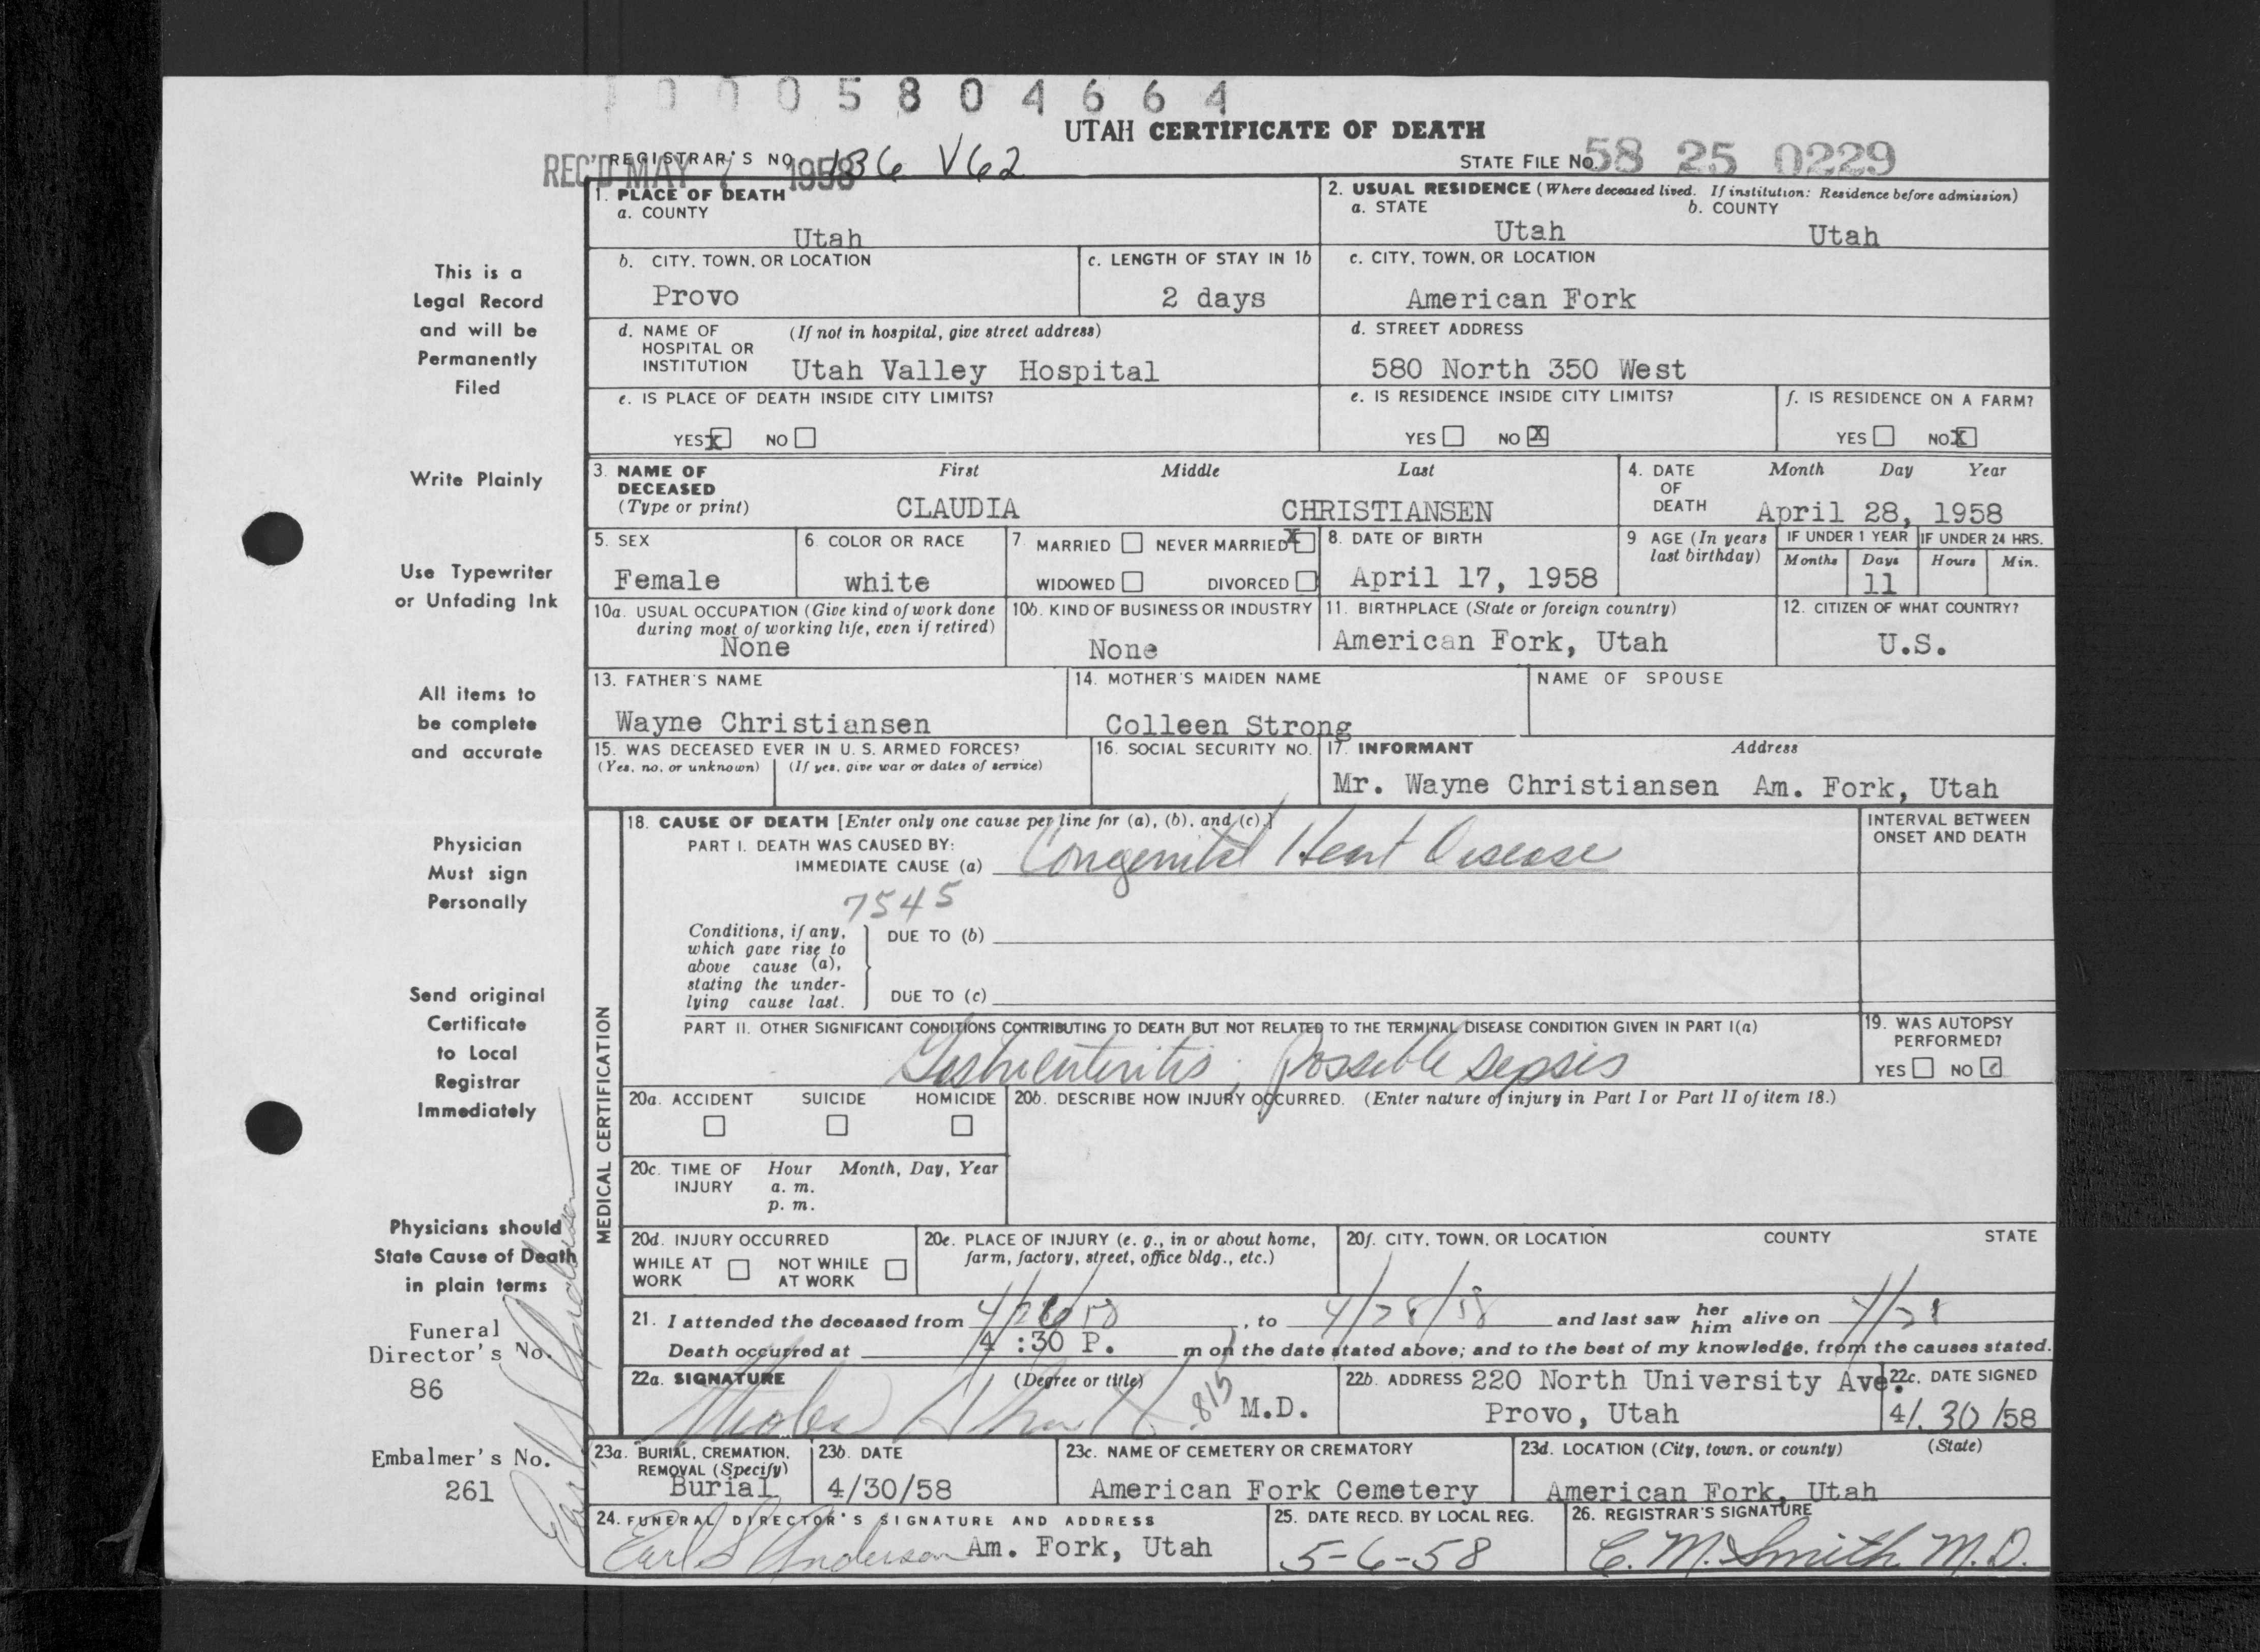 0 0 0 5 8 0 4 6 6 4
UTAH CERTIFICATE OF DEATH
REGISTRAR'S NO. 136 V62
REC'D MAY 7 1958
STATE FILE No. 58 25 0229
This is a
Legal Record
and will be
Permanently
Filed
Write Plainly
Use Typewriter
or Unfading Ink
All items to
be complete
and accurate
Physician
Must sign
Personally
Send original
Certificate
to Local
Registrar
Immediately
Physicians should
State Cause of Death
in plain terms
Funeral
Director's No.
86
Embalmer's No.
261
Earl S Anderson
1. PLACE OF DEATH
a. COUNTY
Utah
2. USUAL RESIDENCE (Where deceased lived. If institution: Residence before admission)
a. STATE b. COUNTY
Utah Utah
b. CITY, TOWN, OR LOCATION
Provo
c. LENGTH OF STAY IN 1b
2 days
c. CITY, TOWN, OR LOCATION
American Fork
d. NAME OF (If not in hospital, give street address)
HOSPITAL OR
INSTITUTION Utah Valley Hospital
d. STREET ADDRESS
580 North 350 West
e. IS PLACE OF DEATH INSIDE CITY LIMITS?
YES X NO
e. IS RESIDENCE INSIDE CITY LIMITS?
YES NO X
f. IS RESIDENCE ON A FARM?
YES NO X
3. NAME OF First Middle Last
DECEASED
(Type or print) CLAUDIA CHRISTIANSEN
4. DATE Month Day Year
OF
DEATH April 28, 1958
5. SEX
Female
6. COLOR OR RACE
white
7. MARRIED NEVER MARRIED X
WIDOWED DIVORCED
8. DATE OF BIRTH
April 17, 1958
9 AGE (In years
last birthday)
IF UNDER 1 YEAR
Months Days
11
IF UNDER 24 HRS.
Hours Min.
10a. USUAL OCCUPATION (Give kind of work done
during most of working life, even if retired)
None
10b. KIND OF BUSINESS OR INDUSTRY
None
11. BIRTHPLACE (State or foreign country)
American Fork, Utah
12. CITIZEN OF WHAT COUNTRY?
U.S.
13. FATHER'S NAME
Wayne Christiansen
14. MOTHER'S MAIDEN NAME
Colleen Strong
NAME OF SPOUSE
15. WAS DECEASED EVER IN U. S. ARMED FORCES?
(Yes, no, or unknown) (If yes, give war or dates of service)
16. SOCIAL SECURITY NO.
17. INFORMANT Address
Mr. Wayne Christiansen Am. Fork, Utah
MEDICAL CERTIFICATION
18. CAUSE OF DEATH [Enter only one cause per line for (a), (b), and (c).]
PART I. DEATH WAS CAUSED BY:
IMMEDIATE CAUSE (a) Congenital Heart Disease
INTERVAL BETWEEN
ONSET AND DEATH
7545
Conditions, if any,
which gave rise to
above cause (a),
stating the under-
lying cause last.
DUE TO (b)
DUE TO (c)
PART II. OTHER SIGNIFICANT CONDITIONS CONTRIBUTING TO DEATH BUT NOT RELATED TO THE TERMINAL DISEASE CONDITION GIVEN IN PART I(a)
Gastroenteritis; Possible sepsis
19. WAS AUTOPSY
PERFORMED?
YES NO
20a. ACCIDENT SUICIDE HOMICIDE
20b. DESCRIBE HOW INJURY OCCURRED. (Enter nature of injury in Part I or Part II of item 18.)
20c. TIME OF Hour Month, Day, Year
INJURY a. m.
p. m.
20d. INJURY OCCURRED
WHILE AT NOT WHILE
WORK AT WORK
20e. PLACE OF INJURY (e. g., in or about home,
farm, factory, street, office bldg., etc.)
20f. CITY, TOWN, OR LOCATION COUNTY STATE
21. I attended the deceased from 4/26/58, to 4/28/58 and last saw her him alive on 4/28
Death occurred at 4:30 P. m on the date stated above; and to the best of my knowledge, from the causes stated.
22a. SIGNATURE (Degree or title)
815 M.D.
22b. ADDRESS 220 North University Ave.
Provo, Utah
22c. DATE SIGNED
4/30/58
23a. BURIAL, CREMATION,
REMOVAL (Specify)
Burial
23b. DATE
4/30/58
23c. NAME OF CEMETERY OR CREMATORY
American Fork Cemetery
23d. LOCATION (City, town, or county) (State)
American Fork, Utah
24. FUNERAL DIRECTOR'S SIGNATURE AND ADDRESS
Earl S Anderson Am. Fork, Utah
25. DATE RECD. BY LOCAL REG.
5-6-58
26. REGISTRAR'S SIGNATURE
C. M. Smith M.D.